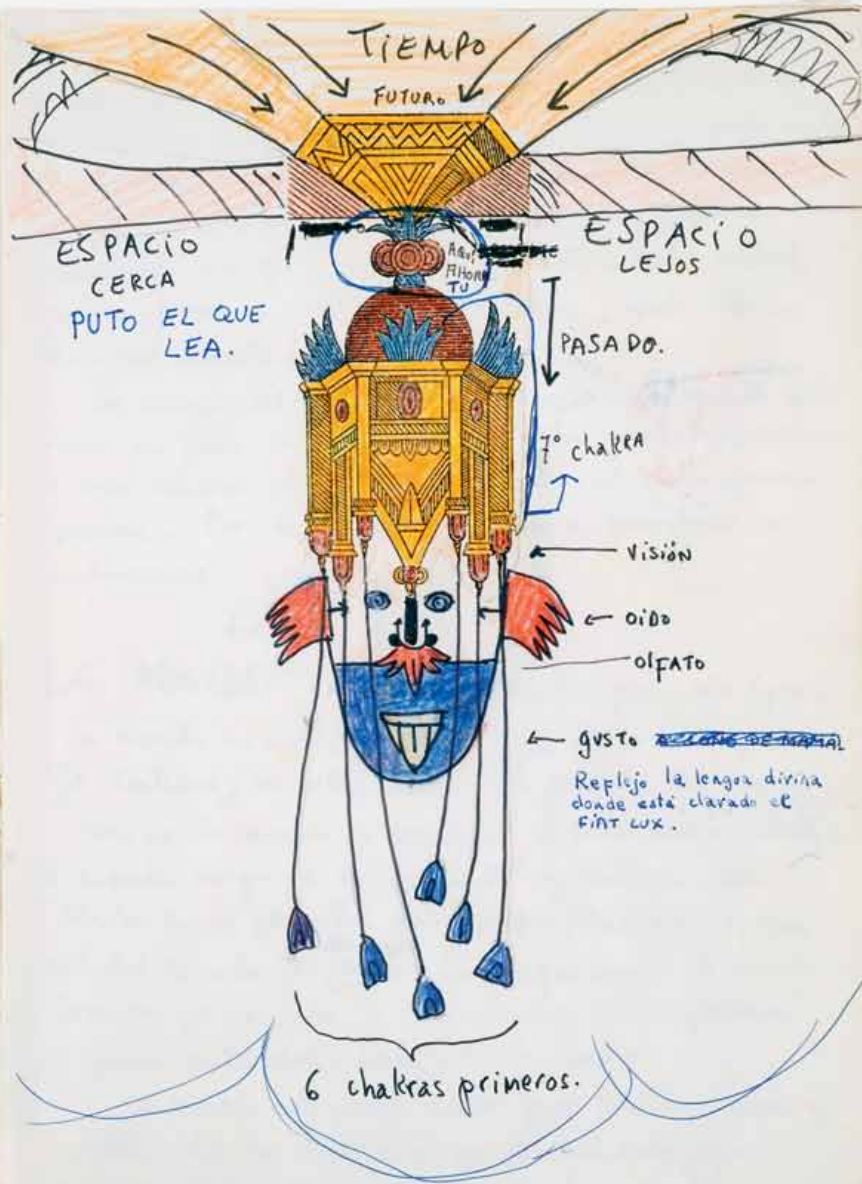 TIEMPO
FUTURO
ESPACIO
CERCA
PUTO EL QUE
LEA.
AQUI
AHORA
TU
ESPACIO
LEJOS
PASADO.
7° chakRA
VISIÓN
OIDO
OLFATO
GUSTO
Reflejo la lengua divina
donde está clavado el
FIAT LUX.
6 chakras primeros.